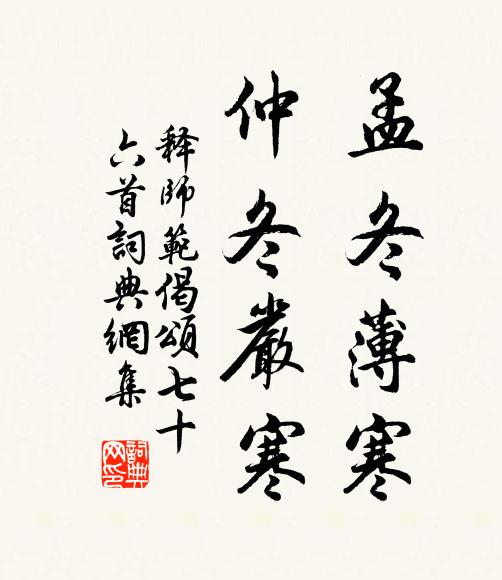 孟冬薄寒
仲冬嚴寒
释師範偈頌七十
六首詞典網集
詞典
网印